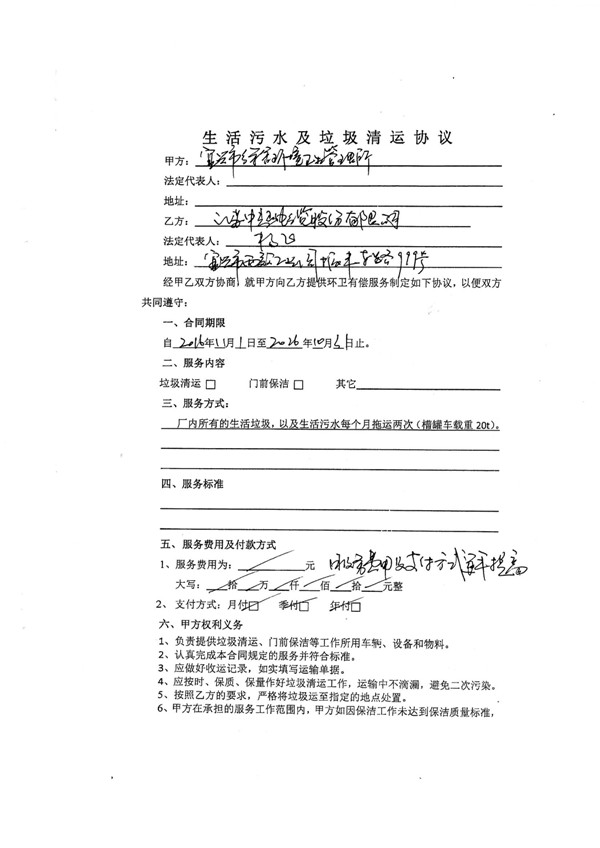 生活污水及垃圾清运协议
甲方：宜兴市 环境卫生管理所
法定代表人：
地址：
乙方：江苏中 电缆股份有限公司
法定代表人：
地址：宜兴市 999号
经甲乙双方协商，就甲方向乙方提供环卫有偿服务制定如下协议，以便双方
共同遵守：
一、合同期限
自 2016年11月1日至2026年10月31日止。
二、服务内容
垃圾清运 □ 门前保洁 □ 其它
三、服务方式：
厂内所有的生活垃圾，以及生活污水每个月拖运两次（槽罐车载重 20t）。
四、服务标准
五、服务费用及付款方式
1、服务费用为： 元 费用及支付方式
大写： 拾 万 仟 佰 拾 元整
2、支付方式：月付□ 季付□ 年付□
六、甲方权利义务
1、负责提供垃圾清运、门前保洁等工作所用车辆、设备和物料。
2、认真完成本合同规定的服务并符合标准。
3、应做好收运记录，如实填写运输单据。
4、应按时、保质、保量作好垃圾清运工作，运输中不滴漏，避免二次污染。
5、按照乙方的要求，严格将垃圾运至指定的地点处置。
6、甲方在承担的服务工作范围内，甲方如因保洁工作未达到保洁质量标准，